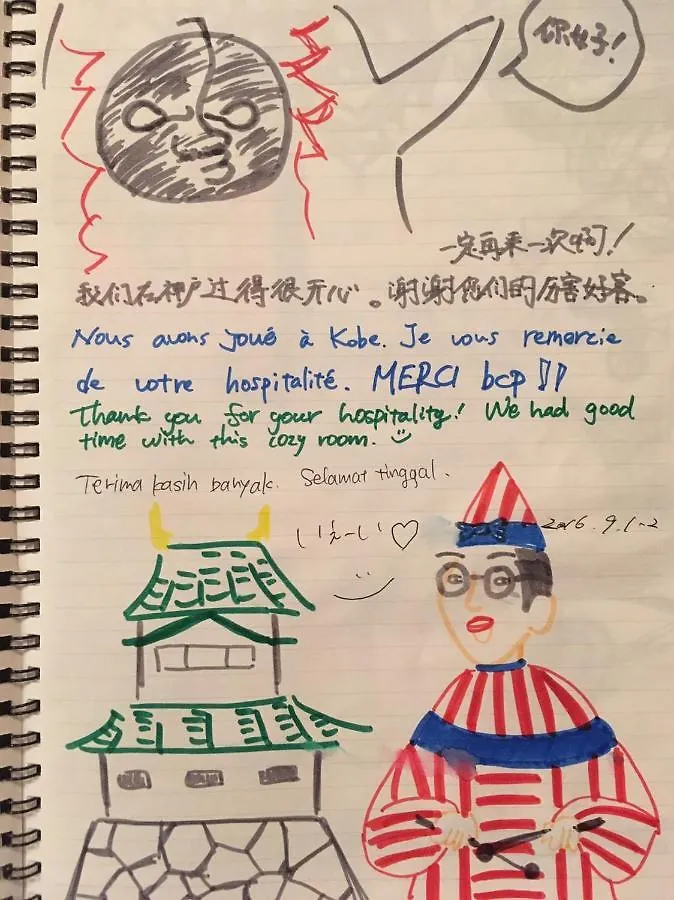 你好!
一定再来一次啊!
我们在神户过得很开心。谢谢你们的厉害好客。
Nous avons joué à Kobe. Je vous remercie
de votre hospitalité. MERCI bcp!!
Thank you for your hospitality! We had good
time with this cozy room.
Terima kasih banyak. Selamat tinggal.
いぇーい♡
2016.9.1-2